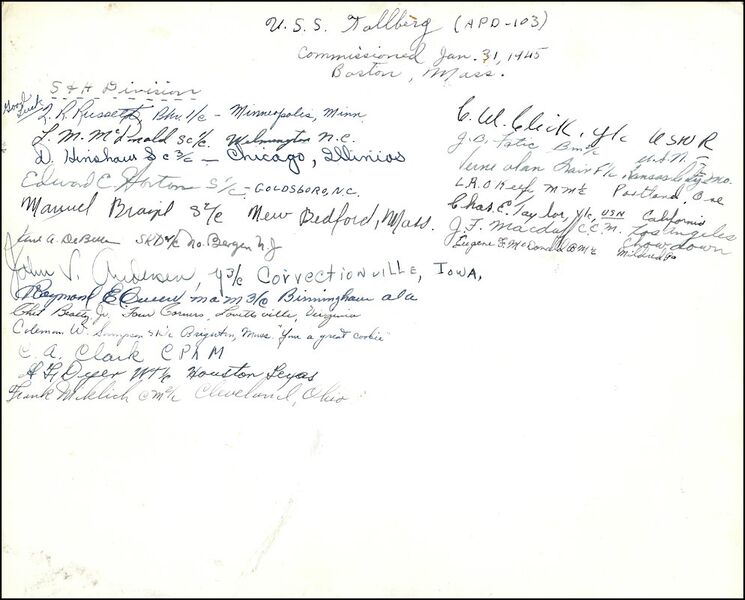 U.S.S. Tollberg (APD-103)
Commissioned Jan. 31, 1945
Boston, Mass.
S & H Division
Good Luck
R. R. Russett, Bkr 1/c - Minneapolis, Minn
L. M. McDonald SC 1/c. Wilmington N.C.
D. Hinshaw SC 3/c - Chicago, Illinios
Edward C Horton S 1/c - GOLDSBORO, N.C.
Manuel Brazil S 2/c New Bedford, Mass.
A. DeBella SKD 2/c No. Bergen N J
John V. Andersen, Y 3/c CORRECTIONVILLE, IOWA,
Raymond E MaM 3/c Birmingham ala
Chet Beatty Jr. Four Corners, Virginia
Coleman W. Simpson SK 1/c Brighton, Mass. "You a great cookie"
C. A. Clark C Ph M
H L Dyer WT 1/c Houston Texas
Frank Miklich CM 2/c Cleveland, Ohio
C. W. Click, Y 1/c USNR
J. B. Bm 1/c U.S.N.
Verne alan F 1/c, Kansas City Mo.
L.R. O'Keefe MM 2/c Portland, Ore
Chas. E. Taylor, Y 1/c, USN California
J. F. C.C.M. Los Angeles
Eugene F. McDonald BM 2/c Chowdown